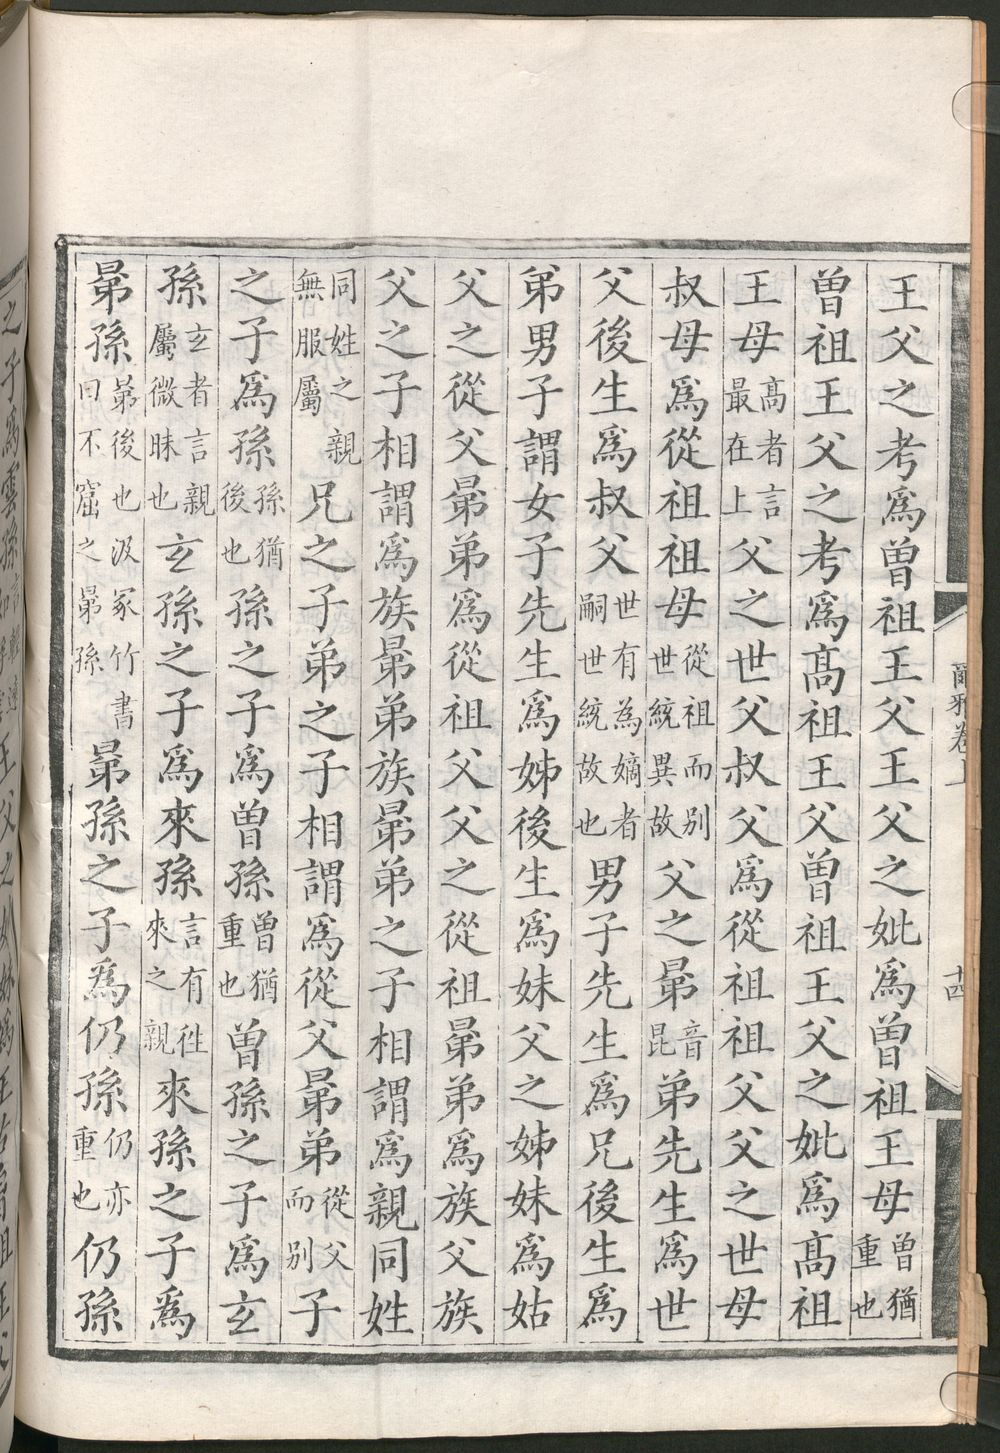 王父之考爲曽祖王父王父之妣爲曽祖王母曽猶重也
曽祖王父之考爲髙祖王父曽祖王父之妣爲髙祖
王母髙者言最在上父之世父叔父爲從祖祖父父之世母
叔母爲從祖祖母從祖而别世統異故父之晜音昆弟先生爲世
父後生爲叔父世有為嫡者嗣世統故也男子先生爲兄後生爲
弟男子謂女子先生爲姊後生爲妹父之姊妹爲姑
父之從父晜弟爲從祖父父之從祖晜弟爲族父族
父之子相謂爲族晜弟族晜弟之子相謂爲親同姓
同姓之親無服屬兄之子弟之子相謂爲從父晜弟從父而别子
之子爲孫孫猶後也孫之子爲曽孫曽猶重也曽孫之子爲玄
孫玄者言親屬微昧也玄孫之子爲來孫言有徃來之親來孫之子爲
晜孫晜後也汲冢竹書曰不窋之晜孫晜孫之子爲仍孫仍亦重也仍孫
爾雅卷上
十四